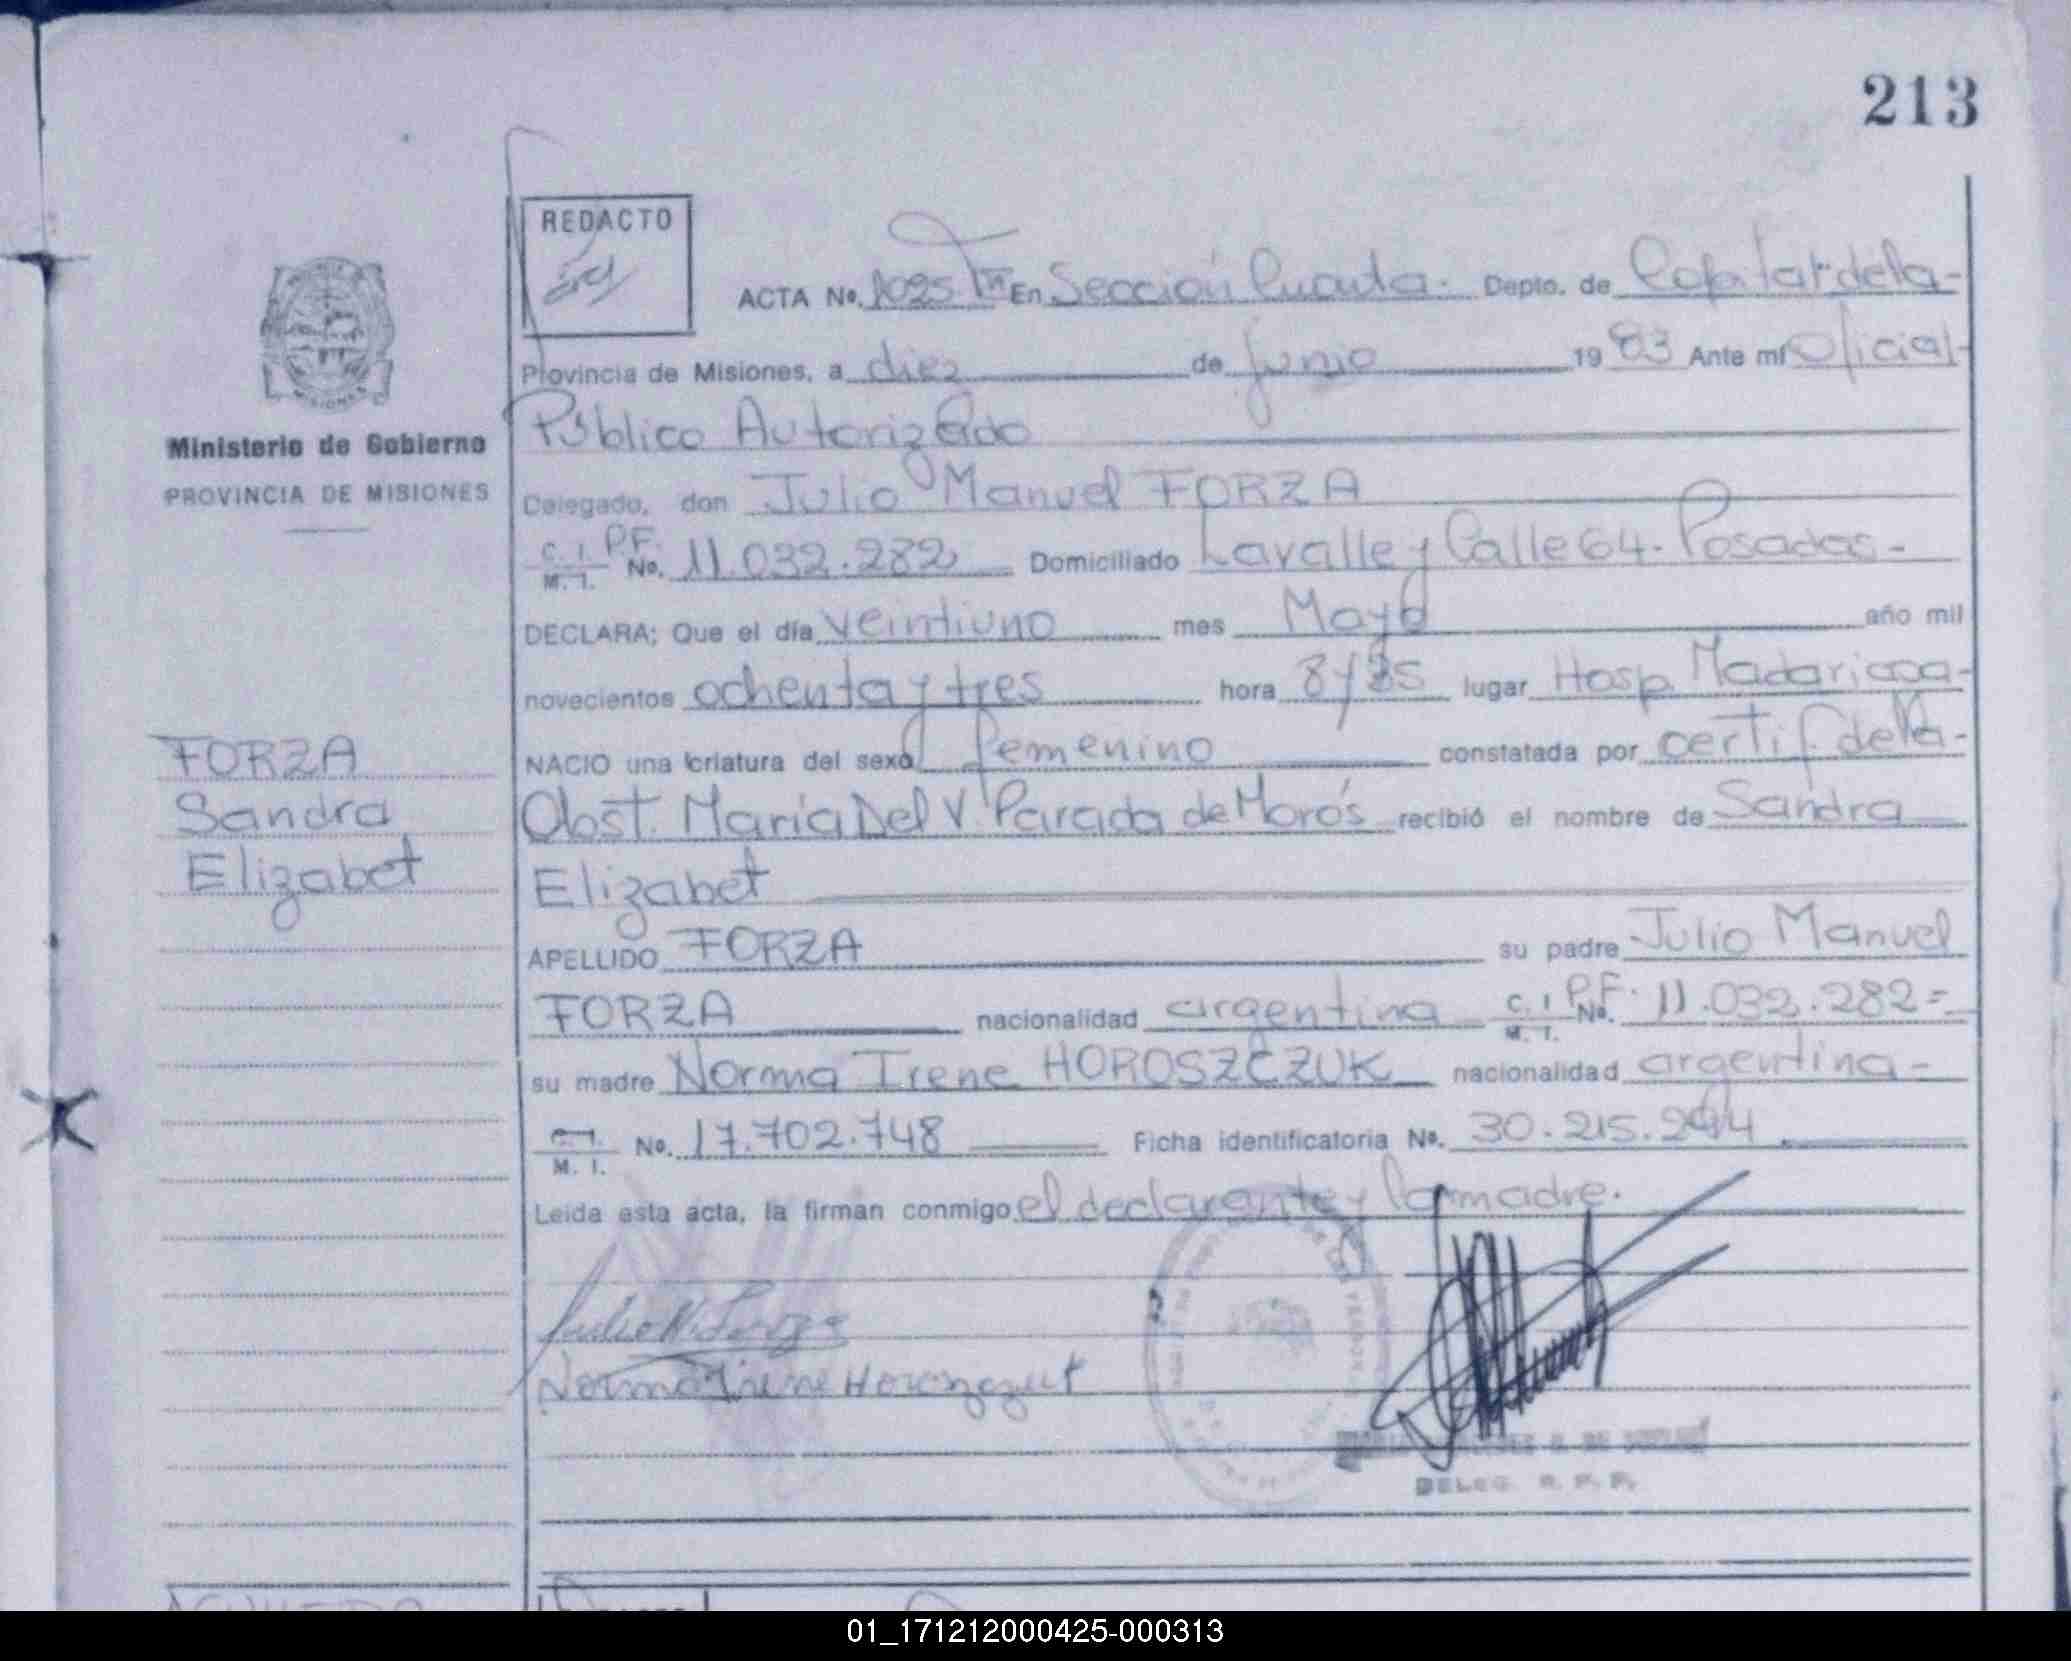 213
REDACTO
ACTA No. 1025 En Sección Cuarta. Depto. de Capital de la-
Provincia de Misiones, a diez de Junio 1983 Ante mí Oficial-
Público Autorizado
Ministerio de Gobierno
PROVINCIA DE MISIONES
Delegado, don Julio Manuel FORZA
C. I. P.F. M. I. No. 11.032.282 Domiciliado Lavalle y Calle 64. Posadas-
DECLARA; Que el día veintiuno mes Mayo año mil
novecientos ochenta y tres hora 8 y lugar Hosp. Madariaga-
NACIO una criatura del sexo femenino constatada por certif. de la-
Obst. María Del V. Parada de Morós recibió el nombre de Sandra
Elizabet
FORZA
Sandra
Elizabet
APELLIDO FORZA su padre Julio Manuel
FORZA nacionalidad argentina C. I. P.F. M. I. No. 11.032.282=
su madre Norma Irene HOROSZCZUK nacionalidad argentina-
C. I. M. I. No. 17.702.748 Ficha identificatoria No. 30.215.294
Leida esta acta, la firman conmigo el declarante y la madre.
Julio M. Forza
Norma Irene
DELEG. R. P. P.
01_171212000425-000313